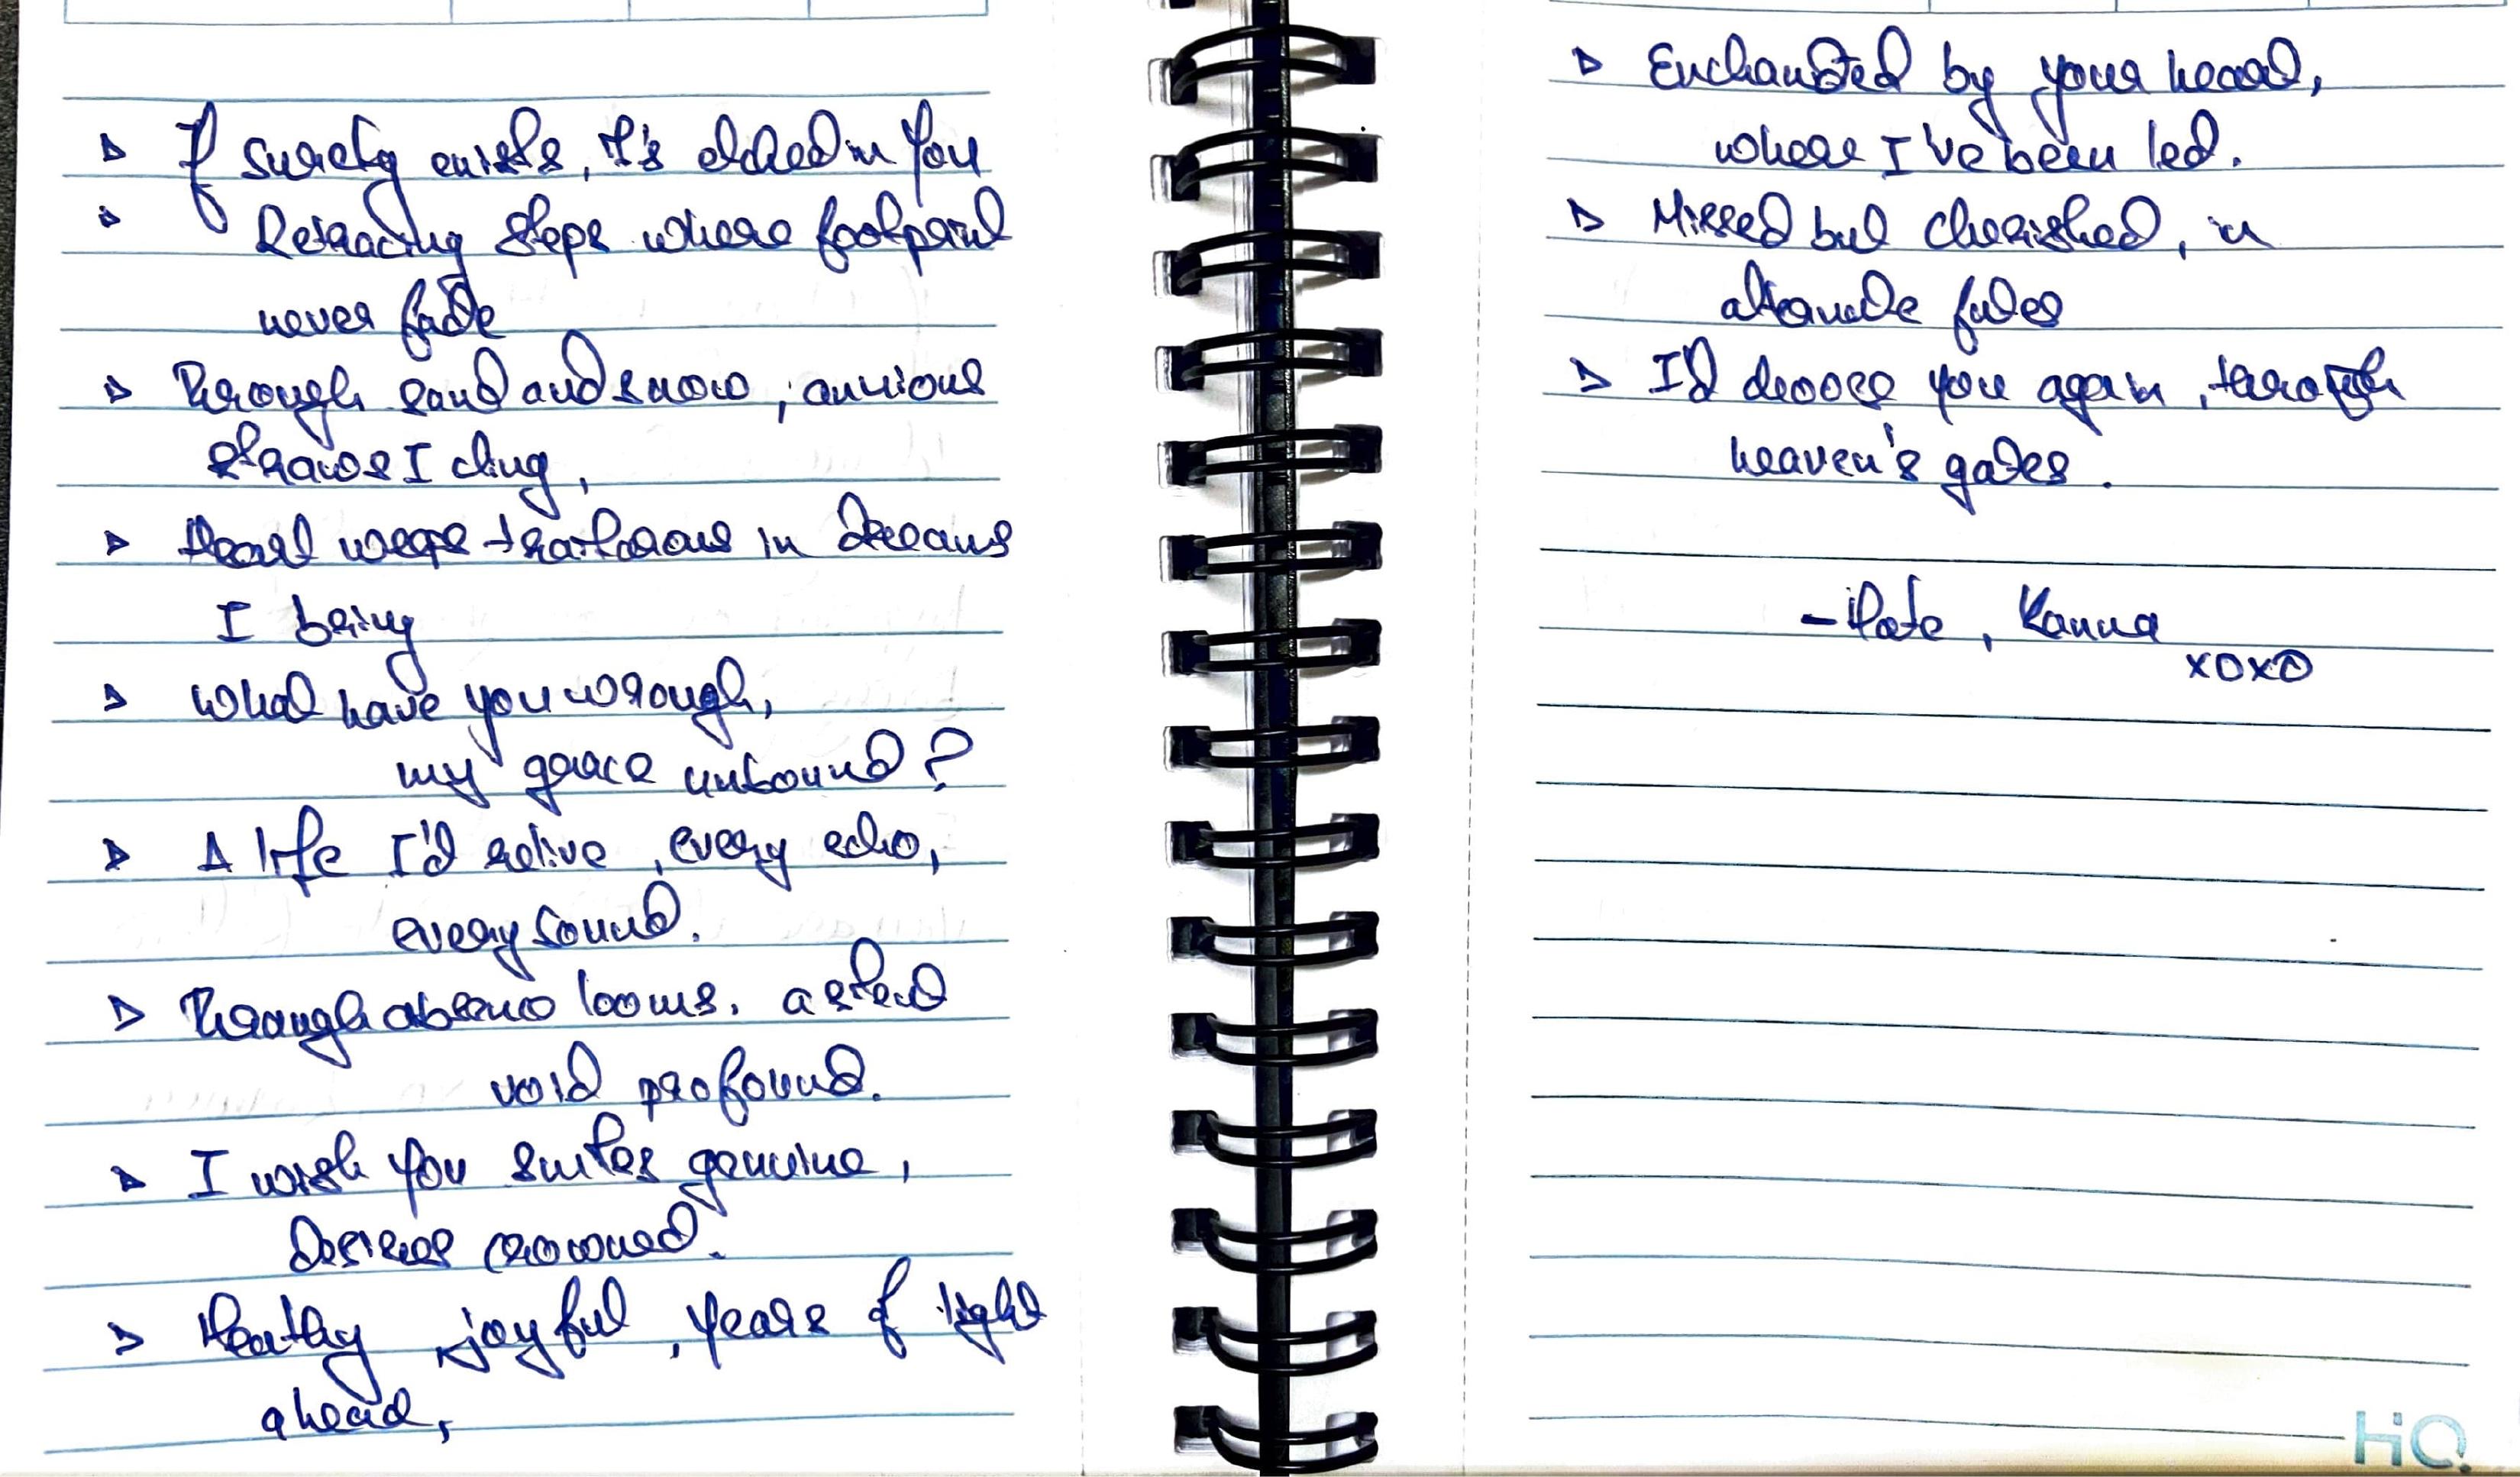 ▷ If surety exists, It's etched in you
▷ Retracing steps where footprint
never fade
▷ Through sand and snow, anxious
straws I cling,
▷ Heart weeps traitorous in dreams
I bring
▷ What have you wrough,
my grace unbound?
▷ A life I'd relive, every echo,
every sound.
▷ Through absence looms, a
void profound.
▷ I wish you smiles genuine,
Desires crowned.
▷ Healthy, joyful, years of light
ahead,
▷ Enchanted by your heart,
where I've been led.
▷ Missed but cherished, in
alternate fates
▷ I'd choose you again, through
heaven's gates.
- Kanna
xoxo
HQ